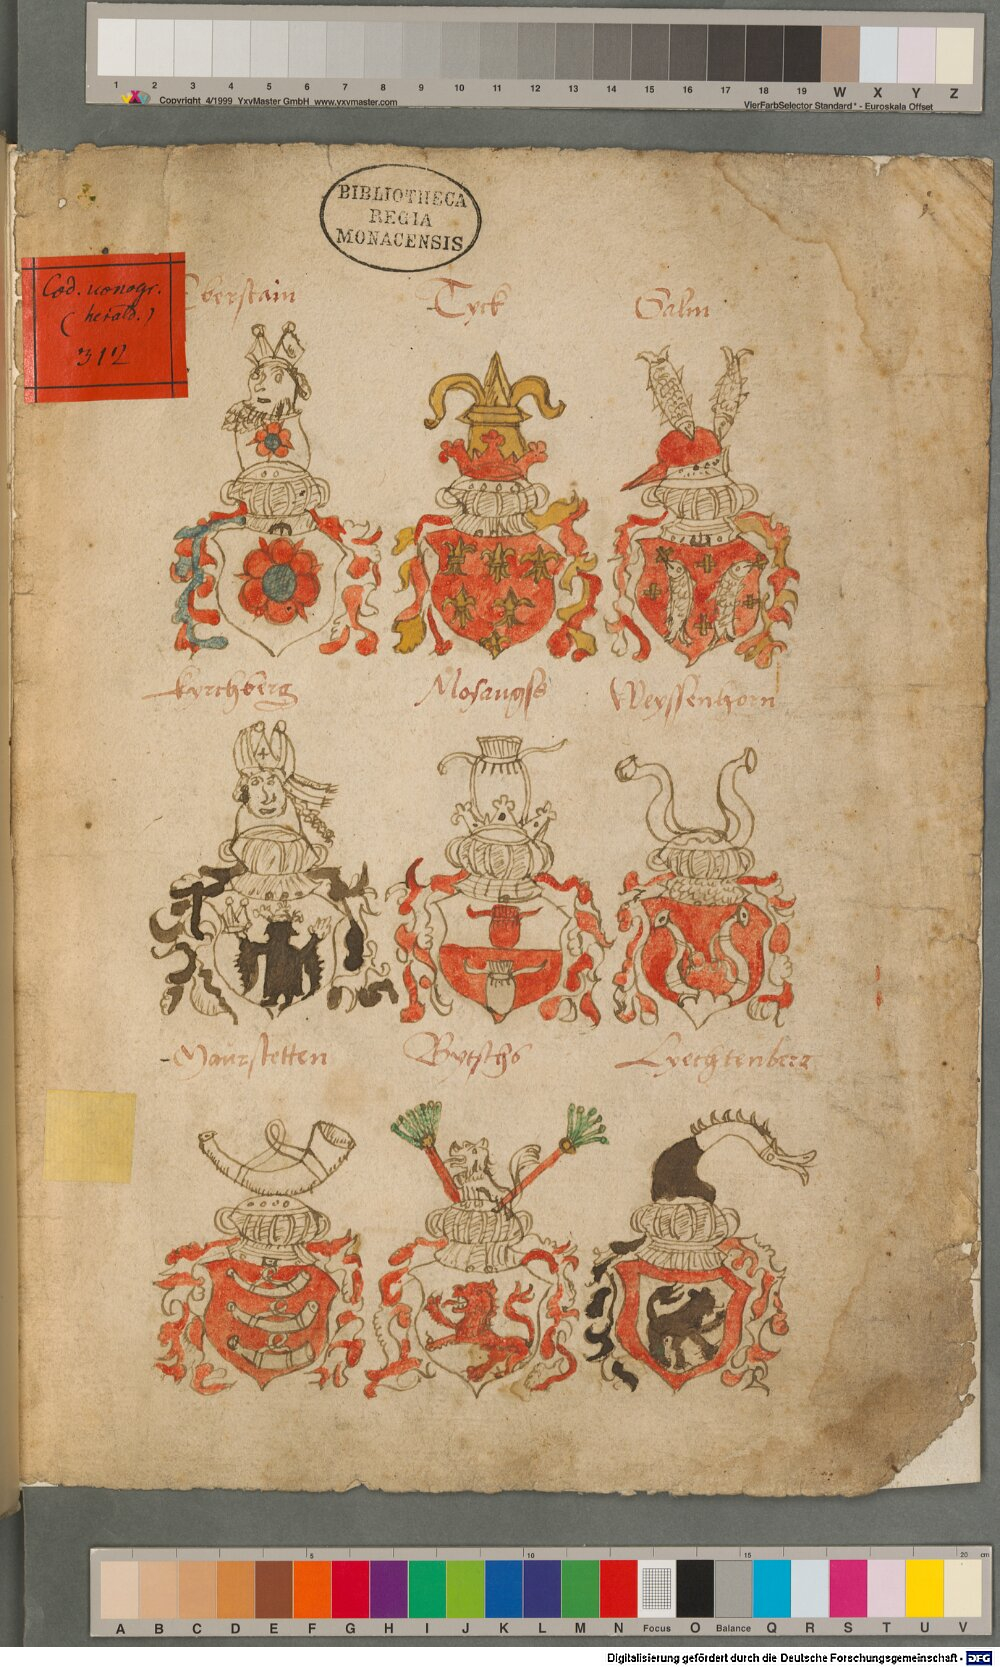 1 2 3 4 5 6 7 8 9 10 11 12 13 14 15 16 17 18 19 W X Y Z
Copyright 4/1999 YxyMaster GmbH www.yxymaster.com
VierFarbSelector Standard* - Euroskala Offset
BIBLIOTHECA
REGIA
MONACENSIS
Cod. iconogr.
(herald.)
312
Eberstain Tyck Salm
kyrchberg Mosaugss Weyssenhorn
Maurstetten Bytschs Lyechtenberg
5 10 15 20 cm
A B C D E F G H I J K L M N Focus O Balance Q R S T U V
Digitalisierung gefördert durch die Deutsche Forschungsgemeinschaft - DFG